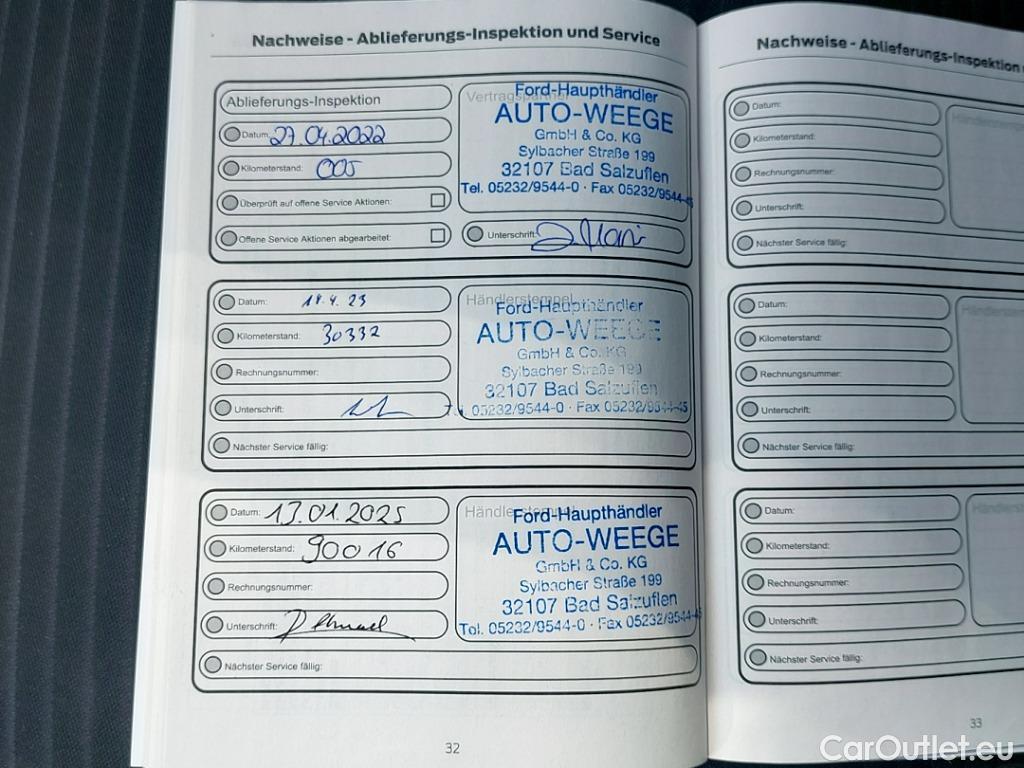 Nachweise - Ablieferungs-Inspektion und Service
Ablieferungs-Inspektion
Datum: 27.04.2022
Kilometerstand: 005
Überprüft auf offene Service Aktionen:
Offene Service Aktionen abgearbeitet:
Vertragspartner
Ford-Haupthändler
AUTO-WEEGE
GmbH & Co. KG
Sylbacher Straße 199
32107 Bad Salzuflen
Tel. 05232/9544-0 · Fax 05232/9544-45
Unterschrift:
Datum: 18.4.23
Kilometerstand: 30332
Rechnungsnummer:
Unterschrift:
Nächster Service fällig:
Händlerstempel
Ford-Haupthändler
AUTO-WEEGE
GmbH & Co. KG
Sylbacher Straße 199
32107 Bad Salzuflen
Tel. 05232/9544-0 · Fax 05232/9544-45
Datum: 13.01.2025
Kilometerstand: 90016
Rechnungsnummer:
Unterschrift:
Nächster Service fällig:
Händlerstempel
Ford-Haupthändler
AUTO-WEEGE
GmbH & Co. KG
Sylbacher Straße 199
32107 Bad Salzuflen
Tel. 05232/9544-0 · Fax 05232/9544-45
32
Nachweise - Ablieferungs-Inspektion
Datum:
Kilometerstand:
Rechnungsnummer:
Unterschrift:
Nächster Service fällig:
Datum:
Kilometerstand:
Rechnungsnummer:
Unterschrift:
Nächster Service fällig:
Datum:
Kilometerstand:
Rechnungsnummer:
Unterschrift:
Nächster Service fällig:
33
CarOutlet.eu